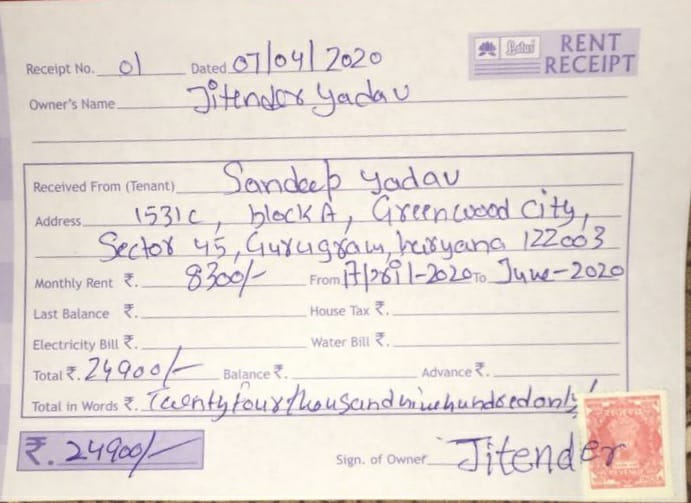 RENT
RECEIPT
Receipt No. 01 Dated 07/04/2020
Owner's Name Jitender Yadav
Received From (Tenant) Sandeep Yadav
Address 1531 C, block A, Greenwood City,
Sector 45, Gurugram, haryana 122003
Monthly Rent ₹. 8300/- From April-2020 To June-2020
Last Balance ₹. House Tax ₹.
Electricity Bill ₹. Water Bill ₹.
Total ₹. 24900/- Balance ₹. Advance ₹.
Total in Words ₹. Twenty four thousand nine hundred only/
₹. 24900/- Sign. of Owner Jitender